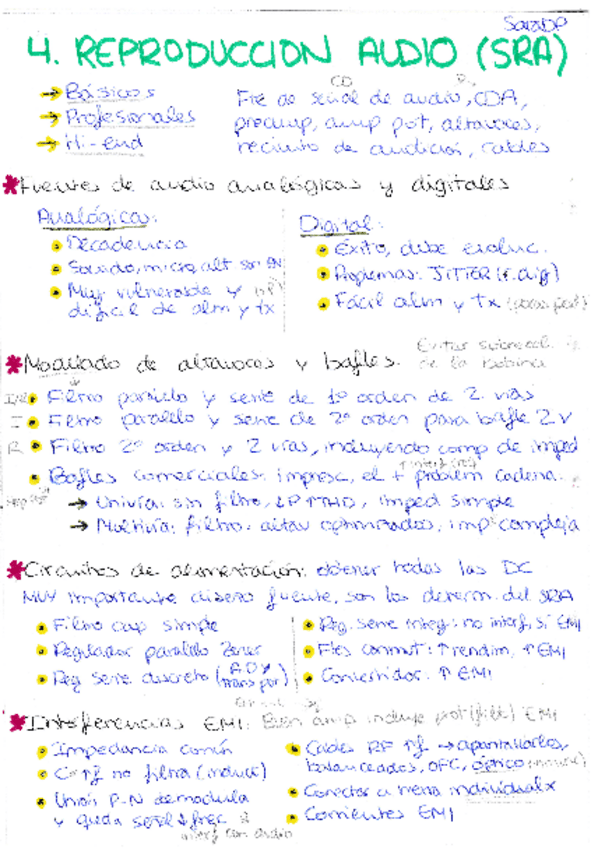 SaraDP
4. REPRODUCCION AUDIO (SRA)
→ Básicos
→ Profesionales
→ Hi-end
CD
Fte de señal de audio, CDA,
preamp, amp pot, altavoces,
recinto de audición, cables
* Fuentes de audio analógicas y digitales
Analógica:
• Decadencia
• Sonido, micro, alt son
• Muy vulnerable y
difícil de alm y tx
Digital:
• Éxito, debe evoluc.
• Problemas: JITTER (r. dig)
• Fácil alm y tx
* Modelado de altavoces y bafles.
Evitar sobreosc.
de la bobina
• Filtro paralelo y serie de 1º orden de 2 vías
• Filtro paralelo y serie de 2º orden para bafle 2 V
R • Filtro 2º orden y 2 vías, incluyendo comp de imped
• Bafles comerciales: impresc, el + problem cadena.
→ Univía: sin filtro, ↓P ↑THD, imped simple
→ Multivía: filtro: altav optimizados, imp compleja
* Circuitos de alimentación: obtener todas las DC
MUY importante diseño fuente, son los determ. del SRA
• Filtro cap simple
• Regulador paralelo Zener
• Reg serie discreto (A.O y
trans pot)
• Reg. serie integ: no interf, si EMI
• Ftes conmut: ↑rendim, ↑EMI
• Convertidor: ↑ EMI
* Interferencias EMI: Buen amp incluye prot (filt) EMI
• Impedancia común
• C ↑f no filtra (induct)
• Unión P-N demodula
y queda señal ↓frec
interf con audio
• Cables RF ↑f → apantallarlos,
balanceados, OFC, óptico
• Conectar a masa individualx
• Corrientes EMI